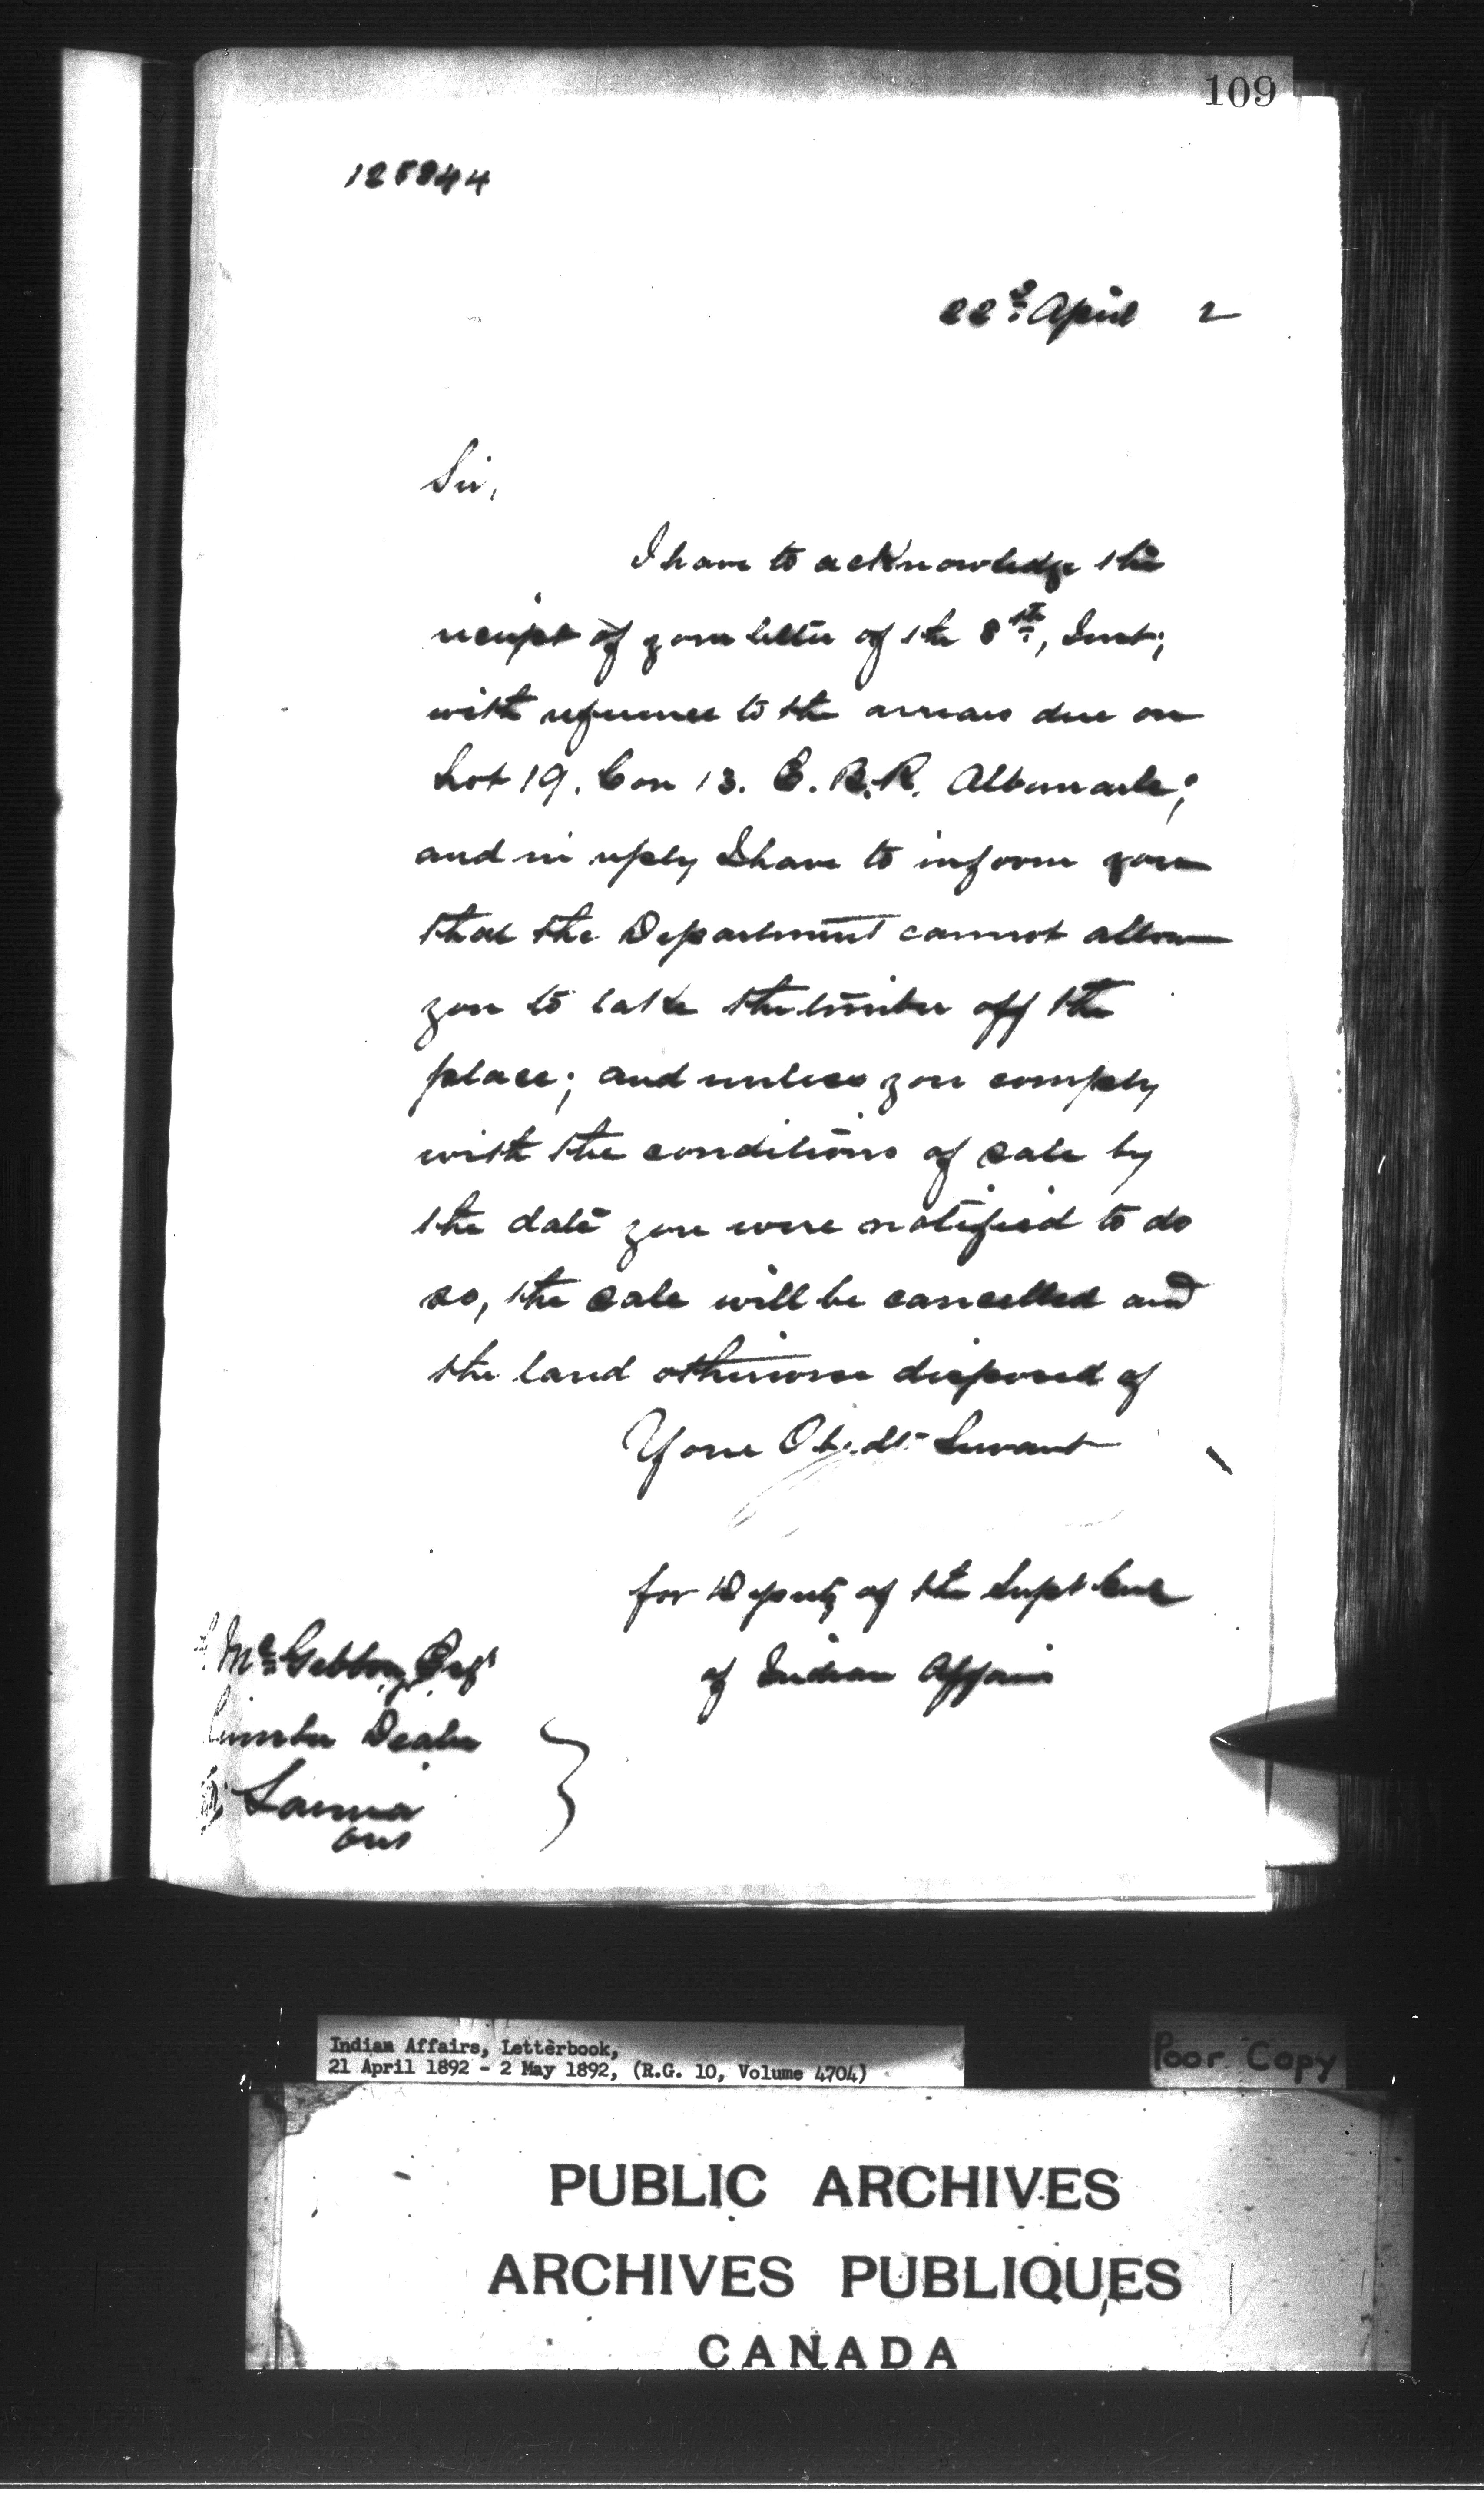 109
128944
22nd April 2
Sir,
I have to acknowledge the
receipt of your letter of the 8th, Inst;
with reference to the arrears due on
Lot 19. Con 13. E. B. R. Albemarle;
and in reply I have to inform you
that the Department cannot allow
you to take the timber off the
place; and unless you comply
with the conditions of sale by
the date you were notified to do
so, the sale will be cancelled and
the land otherwise disposed of
Your Obedt Servant
for Deputy of the Supt Genl
of Indian Affairs
McGibbon, Esqr
Lumber Dealer
Sarnia
Ont
Indian Affairs, Letterbook,
21 April 1892 - 2 May 1892, (R.G. 10, Volume 4704)
Poor Copy
PUBLIC ARCHIVES
ARCHIVES PUBLIQUES
CANADA